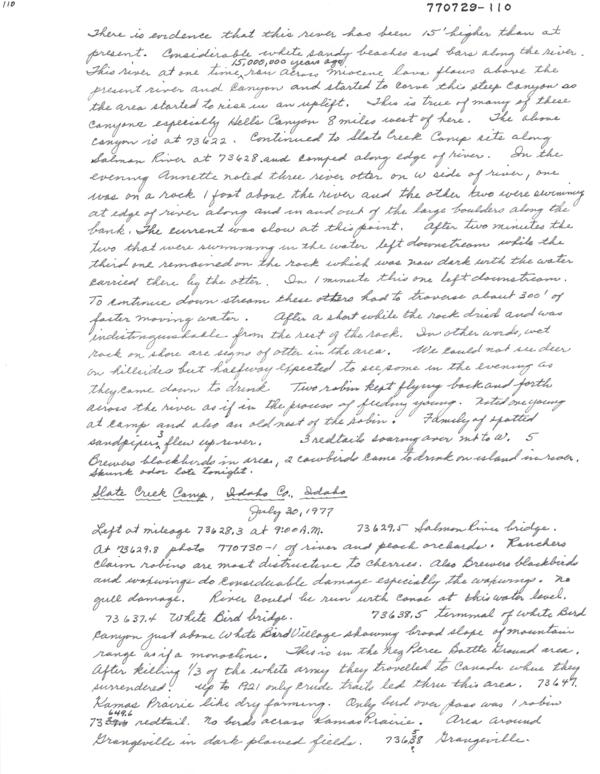 110
770729-110
There is evidence that this river has been 15' higher than at
present. Considerable white sandy beaches and bars along the river.
15,000,000 years ago
This river at one time ran across miocene lava flows above the
present river and canyon and started to carve this steep canyon as
the area started to rise in an uplift. This is true of many of these
canyons especially Hells Canyon 8 miles west of here. The above
canyon is at 73622. Continued to Slate Creek Camp site along
Salmon River at 73628 and camped along edge of river. In the
evening Annette noted three river otter on W side of river, one
was on a rock 1 foot above the river and the other two were swimming
at edge of river along and in and out of the large boulders along the
bank. The current was slow at this point. After two minutes the
two that were swimming in the water left downstream while the
third one remained on the rock which was now dark with the water
carried there by the otter. In 1 minute this one left downstream.
To continue down stream these otters had to traverse about 300' of
faster moving water. After a short while the rock dried and was
indistinguishable from the rest of the rock. In other words, wet
rock on shore are signs of otter in the area. We could not see deer
on hillsides but halfway expected to see some in the evening as
they came down to drink. Two robin kept flying back and forth
across the river as if in the process of feeding young. Noted one young
at camp and also an old nest of the robin. Family of spotted
sandpipers, 3 flew up river. 3 redtails soaring over mt to W. 5
Brewers blackbirds in area, 2 cowbirds came to drink on island in river.
Skunk odor late tonight.
Slate Creek Camp, Idaho Co., Idaho
July 30, 1977
Left at mileage 73628.3 at 9:00 A.M. 73629.5 Salmon River bridge.
At 73629.8 photo 770730-1 of river and peach orchards. Ranchers
claim robins are most distructive to cherries. Also Brewers blackbirds
and waxwings do considerable damage especially the waxwings. No
gull damage. River could be run with canoe at this water level.
73637.4 White Bird bridge. 73638.5 terminal of White Bird
Canyon just above White Bird Village showing broad slope of mountain
range as if a monocline. This is in the Nez Perce Battle Ground area.
After killing 1/3 of the white army they travelled to Canada where they
surrendered. Up to 1921 only crude trails led thru this area. 73647
Kamas Prairie like dry farming. Only bird over pass was 1 robin
649.6
73 redtail. No birds across Kamas Prairie. Area around
Grangeville in dark plowed fields. 73658 Grangeville.